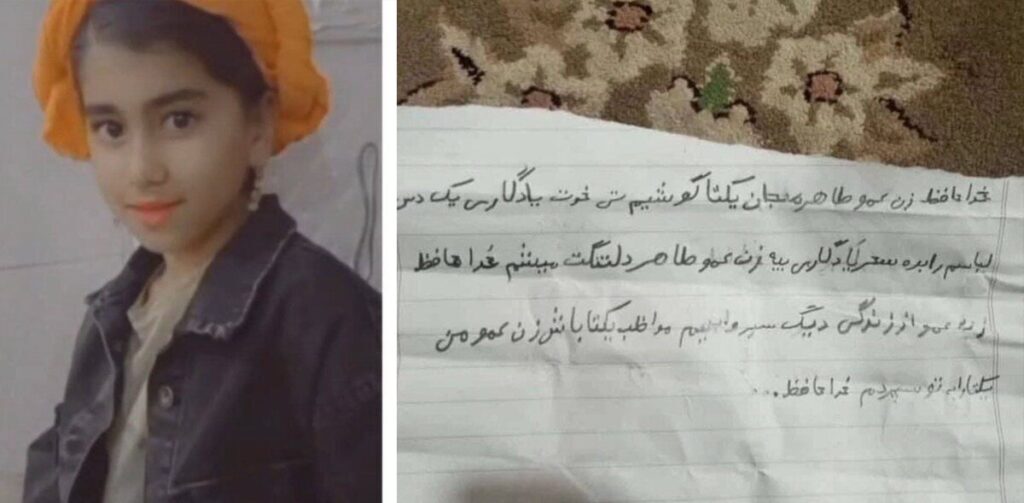 خداحافظ زن عمو طاهره جان یکتا گوشیم تی خوت یادگاری یک دس
لباسم رابده سحر یادگاری بیه زن عمو طاهر دلتنگت میشم خداحافظ
زن عمو از زندگی دیگ سیر وابیم مواظب یکتا باش زن عمو من
یکتا را به تو سپردم خداحافظ...